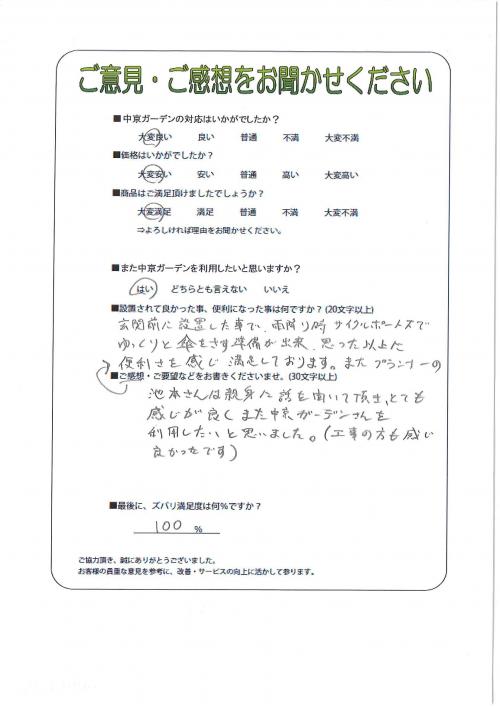 ご意見・ご感想をお聞かせください
■中京ガーデンの対応はいかがでしたか？
大変良い 良い 普通 不満 大変不満
■価格はいかがでしたか？
大変安い 安い 普通 高い 大変高い
■商品はご満足頂けましたでしょうか？
大変満足 満足 普通 不満 大変不満
⇒よろしければ理由をお聞かせください。
■また中京ガーデンを利用したいと思いますか？
はい どちらとも言えない いいえ
■設置されて良かった事、便利になった事は何ですか？(20文字以上)
玄関前に設置した事で、雨降り時 サイクルポートズで
ゆっくりと傘をさす準備が出来、思った以上に
便利さを感じ 満足しております。また プランナーの
■ご感想・ご要望などをお書きくださいませ。(30文字以上)
池本さんは親身に話を聞いて頂き、とても
感じが良く また中京ガーデンさんを
利用したいと思いました。(工事の方も感じ
良かったです)
■最後に、ズバリ満足度は何%ですか？
100 %
ご協力頂き、誠にありがとうございました。
お客様の貴重な意見を参考に、改善・サービスの向上に活かして参ります。